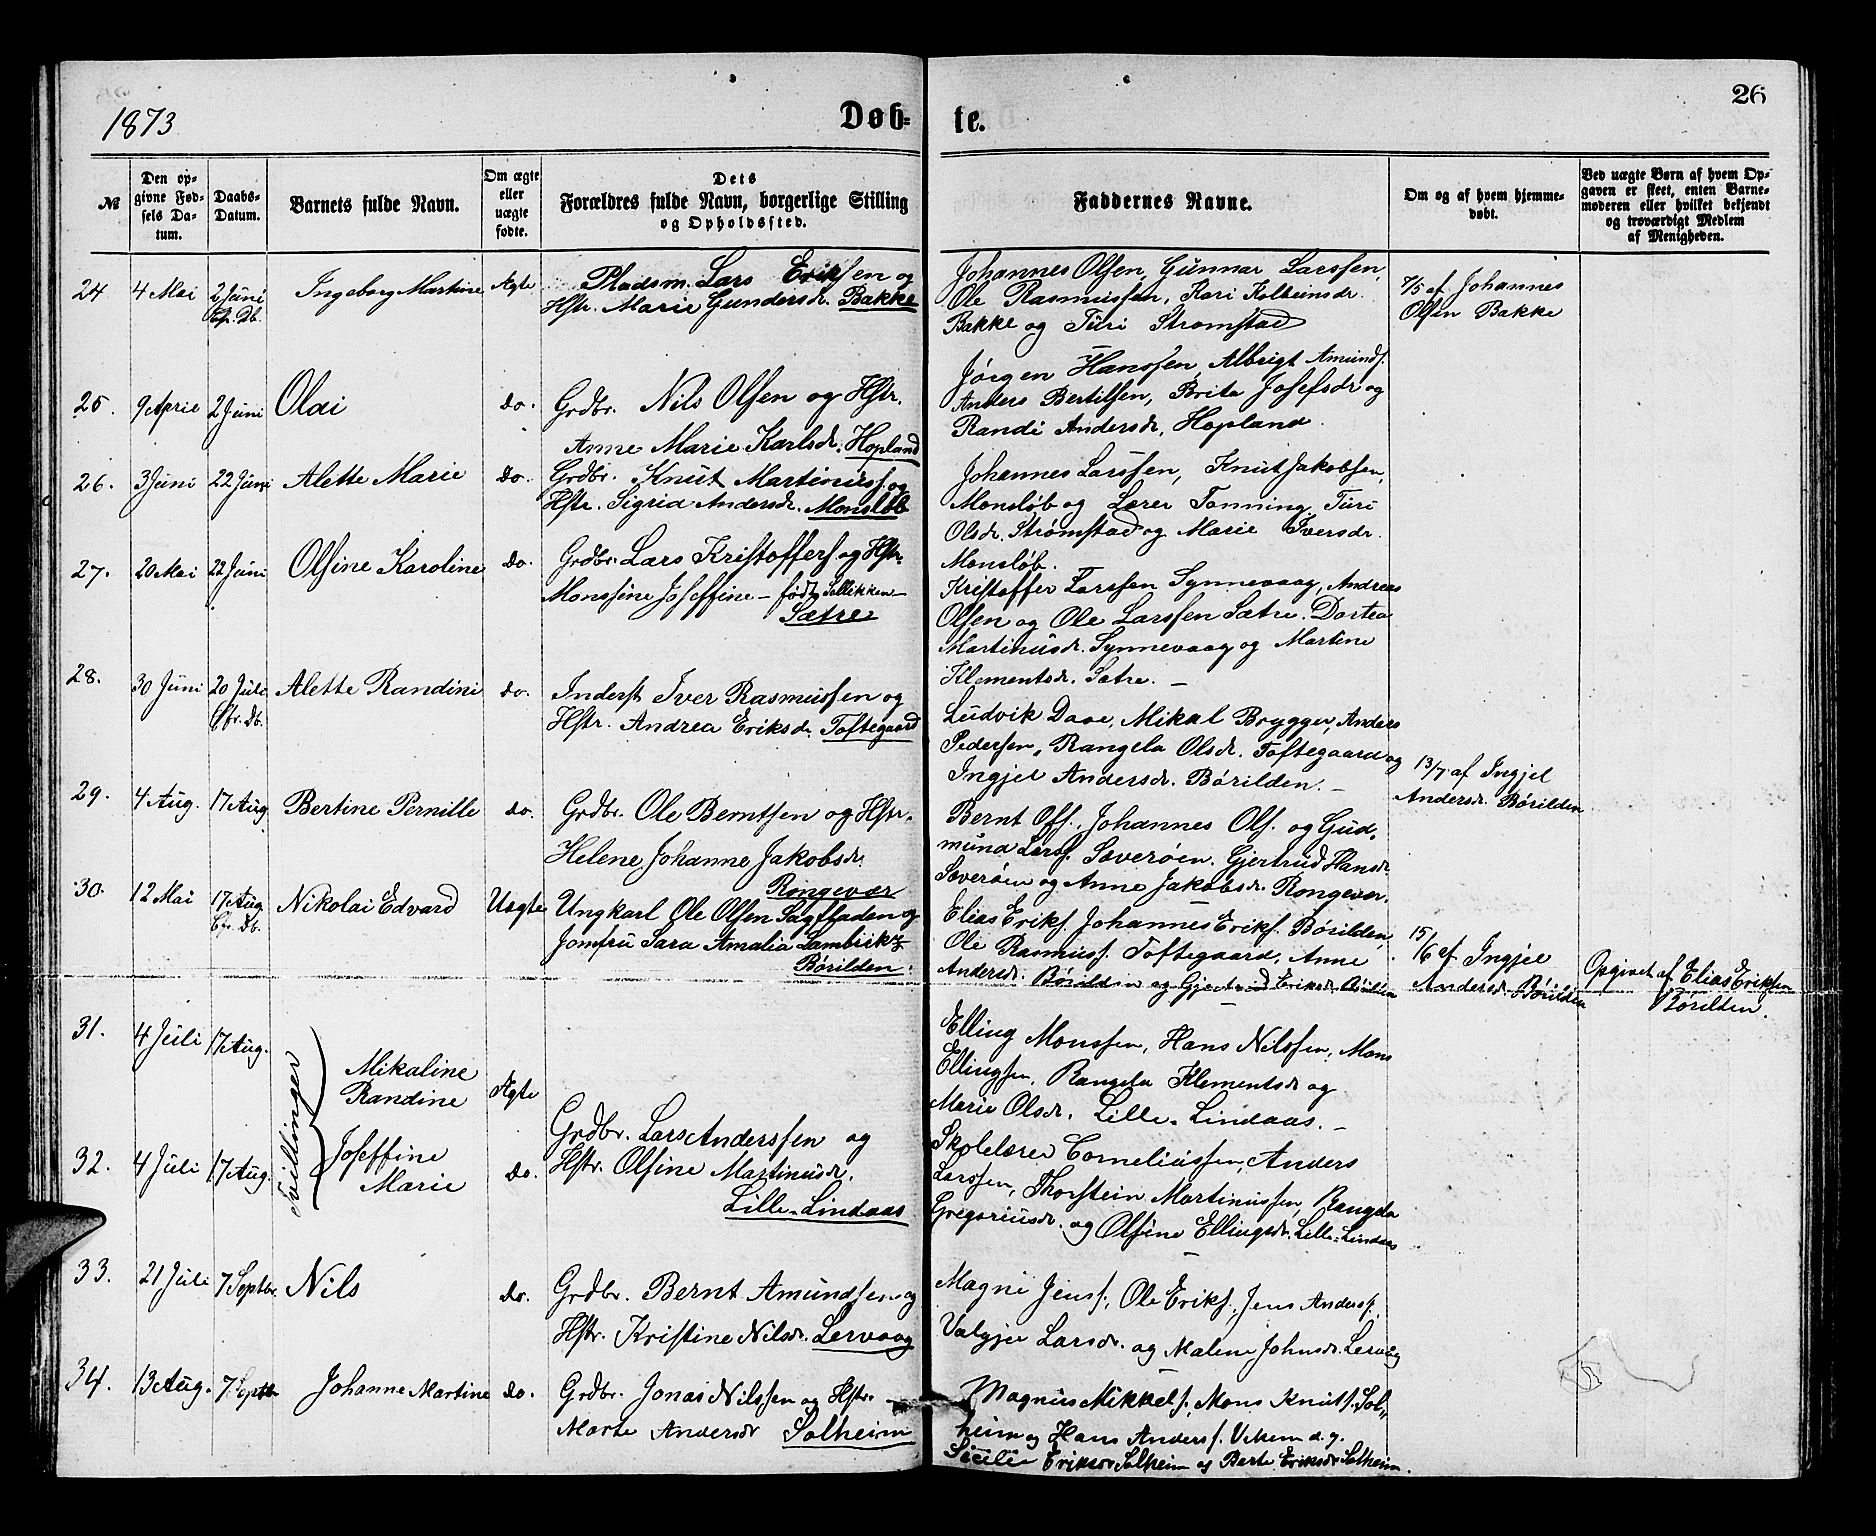 1873
Døb-
te.
26
№
Den op-
givne Fød-
sels Da-
tum.
Daabs-
Datum.
Barnets fulde Navn.
Om ægte
eller
uægte
fødte.
Dets
Forældres fulde Navn, borgerlige Stilling
og Opholdssted.
Faddernes Navne.
Om og af hvem hjemme-
døbt.
Ved uægte Børn af hvem Op-
gaven er skeet, enten Barne-
moderen eller hvilket bekjendt
og troværdigt Medlem
af Menigheden.
24 4 Mai 2 Juni Ingeborg Martine Ægte Pladsm. Lars Eriksen og
Hstr. Marie Gundersdr. Bakke
Johannes Olsen, Gunnar Larssen,
Ole Rasmussen, Kari Kolbeinsdr.
Bakke og Turi Strømstad
7/5 af Johannes
Olsen Bakke
25. 9 April 2 Juni Olai do. Grdbr. Nils Olsen og Hstr.
Anne Marie Karlsdr. Hopland
Jørgen Hanssen, Albrigt Amunds.
Anders Bertilsen, Brita Josefsdr og
Randi Andersdr, Hopland.
26. 3 Juni 22 Juni Alette Marie do. Grdbr. Knut Martinuss. og
Hstr. Sigrid Andersdr. Monsløb
Johannes Larssen, Knut Jakobsen,
Monsløb og Lærer Tonning, Turi
Olsdr. Strømstad og Marie Iversdr.
Monsløb.
27. 20 Mai 22 Juni Olsine Karoline do. Grdbr. Lars Kristoffers og Hstr.
Monssine Joseffine – født Sellikken –
Sætre
Kristoffer Larssen Synnevaag, Andreas
Olsen og Ole Larssen Sætre. Dortea
Martinusdr. Synnevaag og Martine
Klementsdr. Sætre. –
28. 30 Juni 20 Juli Alette Randine do. Inderst Iver Rasmussen og
Hstr. Andrea Eriksdr. Toftegaard
Ludvik Daae, Mikal Brygger, Anders
Pedersen, Rangela Olsdr. Toftegaard og
Ingjel Andersdr. Børilden. –
13/7 af Ingjel
Andersdr. Børilden
29. 4 Aug. 17 Aug. Bertine Pernille do. Grdbr. Ole Berntsen og Hstr.
Helene Johanne Jakobsdr.
Rongevær
Bernt Ols., Johannes Ols. og Gud-
mund Larss. Sæverøen. Gjertrud Hansdr
Sæverøen og Anne Jakobsdr. Rongevær.
30. 12 Mai 17 Aug Nikolai Edvard Uægte Ungkarl Ole Olsen Sagstaden og
Jomfru Sara Amalia
Børilden.
Elias Eriks. Johannes Eriks. Børilden,
Ole Rasmuss. Toftegaard, Anne
Andersdr. Børilden og Gjertrud Eriksdr. Børilden
15/6 af Ingjel
Andersdr. Børilden
Opgivet af Elias Eriksen
Børilden.
31. 4 Juli 17 Aug. Tvillinger Mikaline
Randine Ægte
Elling Monssen, Hans Nilssen, Mons
Ellingsen, Rangela Klementsdr og
Marie Olsdr. Lille-Lindaas. –
32. 4 Juli 17 Aug. Joseffine
Marie do. Grdbr. Lars Anderssen og
Hstr. Olsine Martinusdr.
Lille-Lindaas
Skolelærer Corneliussen, Anders
Larssen, Thorstein Martinussen, Rangela
Gregoriusdr. og Olsine Ellingsdr. Lille-Lindaas
33. 21 Juli 7 Septbr. Nils do. Grdbr. Bernt Amundsen og
Hstr. Kristine Nilsdr. Lervaag
Magne Jens., Ole Eriks., Jens Anderss.
Valgjer Larsdr. og Malene Johnsdr. Lervåg
34. 13 Aug. 7 Septbr Johanne Martine do. Grdbr. Jonas Nilssen og Hstr.
Marte Andersdr Solheim
Magnus Mikkels., Mons Knuts. Sol-
heim og Hans Anderss.
Sicilie Eriksdr Solheim og Berte Eriksdr Solheim.